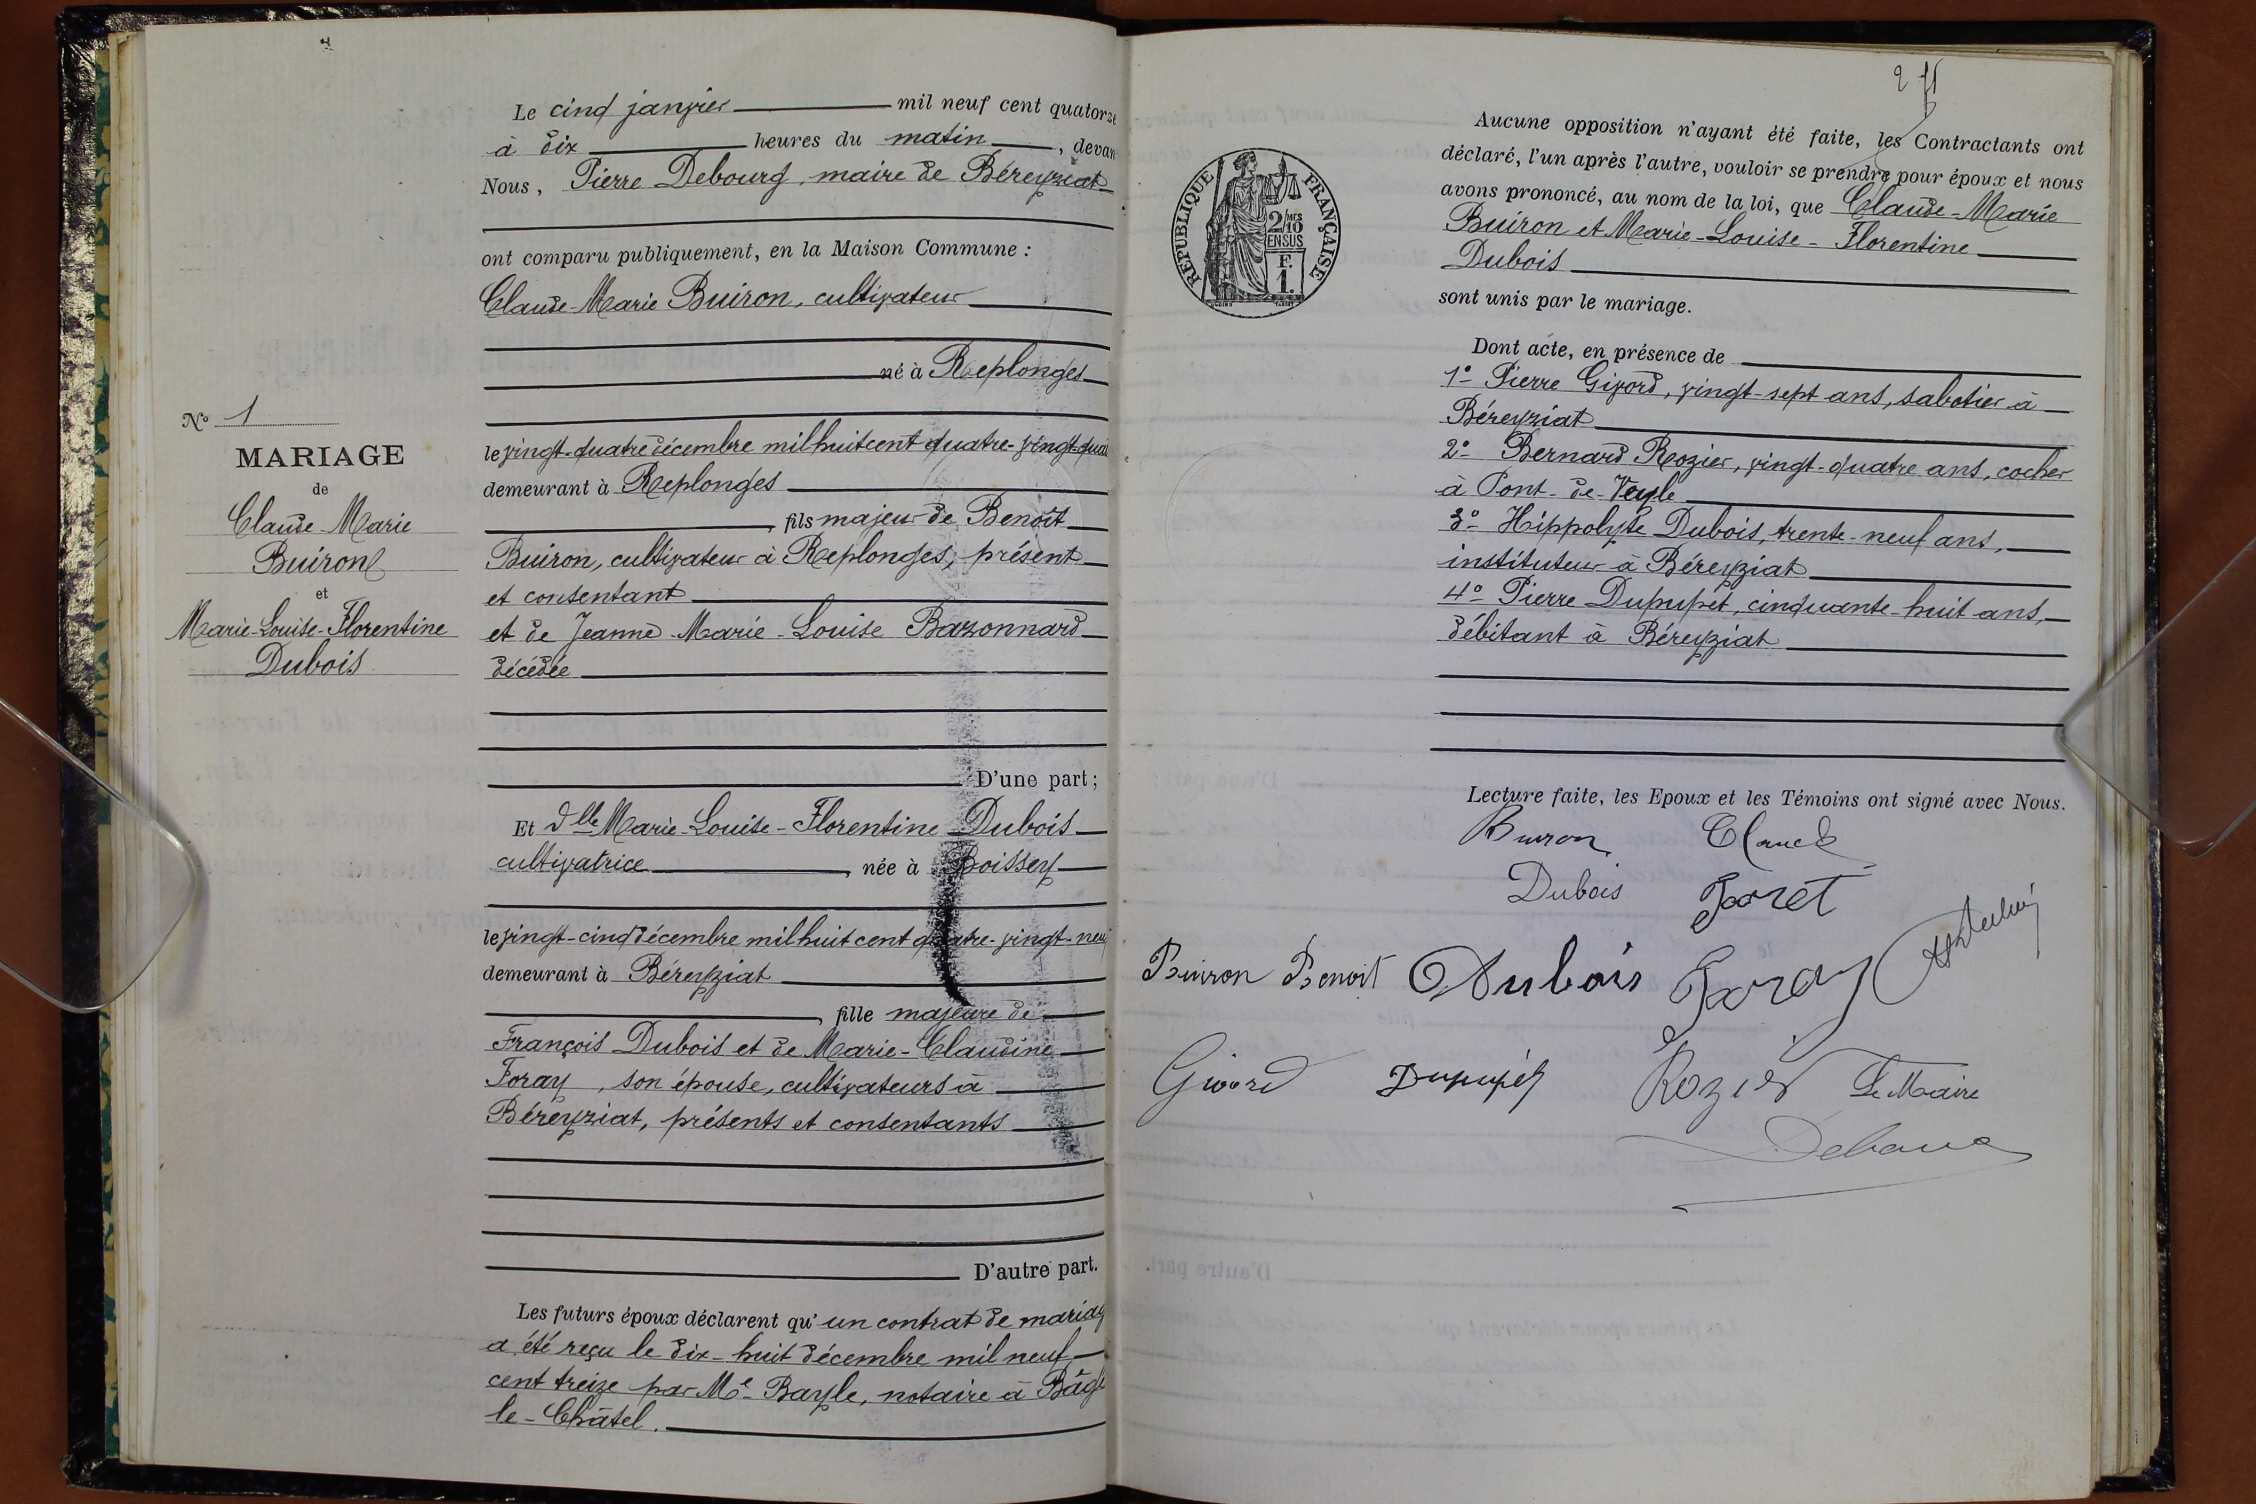 Le cinq janvier mil neuf cent quatorze
à dix heures du matin, devan
Nous, Pierre Debourg, maire de Béreyziat
ont comparu publiquement, en la Maison Commune :
Claude-Marie Buiron, cultivateur
né à Replonges
le vingt-quatre décembre mil huit cent quatre-vingt-quat
demeurant à Replonges
, fils majeur de Benoît
Buiron, cultivateur à Replonges, présent
et consentant
et de Jeanne-Marie-Louise Bazonnard
décédée
D'une part ;
Et dlle Marie-Louise-Florentine Dubois
cultivatrice, née à Boissey
le vingt-cinq décembre mil huit cent quatre-vingt-neuf
demeurant à Béreyziat
, fille majeure de
François Dubois et de Marie-Claudine
Foray, son épouse, cultivateurs à
Béreyziat, présents et consentants
D'autre part.
Les futurs époux déclarent qu'un contrat de mariag
a été reçu le dix-huit décembre mil neuf
cent treize par Me Bayle, notaire à Bâgé
le-Châtel.
No 1
MARIAGE
de
Claude-Marie
Buiron
et
Marie-Louise-Florentine
Dubois
2
RÉPUBLIQUE FRANÇAISE
2/10
MES
EN SUS
F.
1.
Aucune opposition n'ayant été faite, les Contractants ont
déclaré, l'un après l'autre, vouloir se prendre pour époux et nous
avons prononcé, au nom de la loi, que Claude-Marie
Buiron et Marie-Louise-Florentine
Dubois
sont unis par le mariage.
Dont acte, en présence de
1º Pierre Givord, vingt-sept ans, sabotier à
Béreyziat
2º Bernard Rozier, vingt-quatre ans, cocher
à Pont-de-Veyle
3º Hippolyte Dubois, trente-neuf ans,
instituteur à Béreyziat
4º Pierre Dupupet, cinquante-huit ans,
débitant à Béreyziat
Lecture faite, les Epoux et les Témoins ont signé avec Nous.
Buiron Claude
Dubois
Buiron Benoit Dubois Foray
Givord Dupupet Rozier Le Maire
Debourg